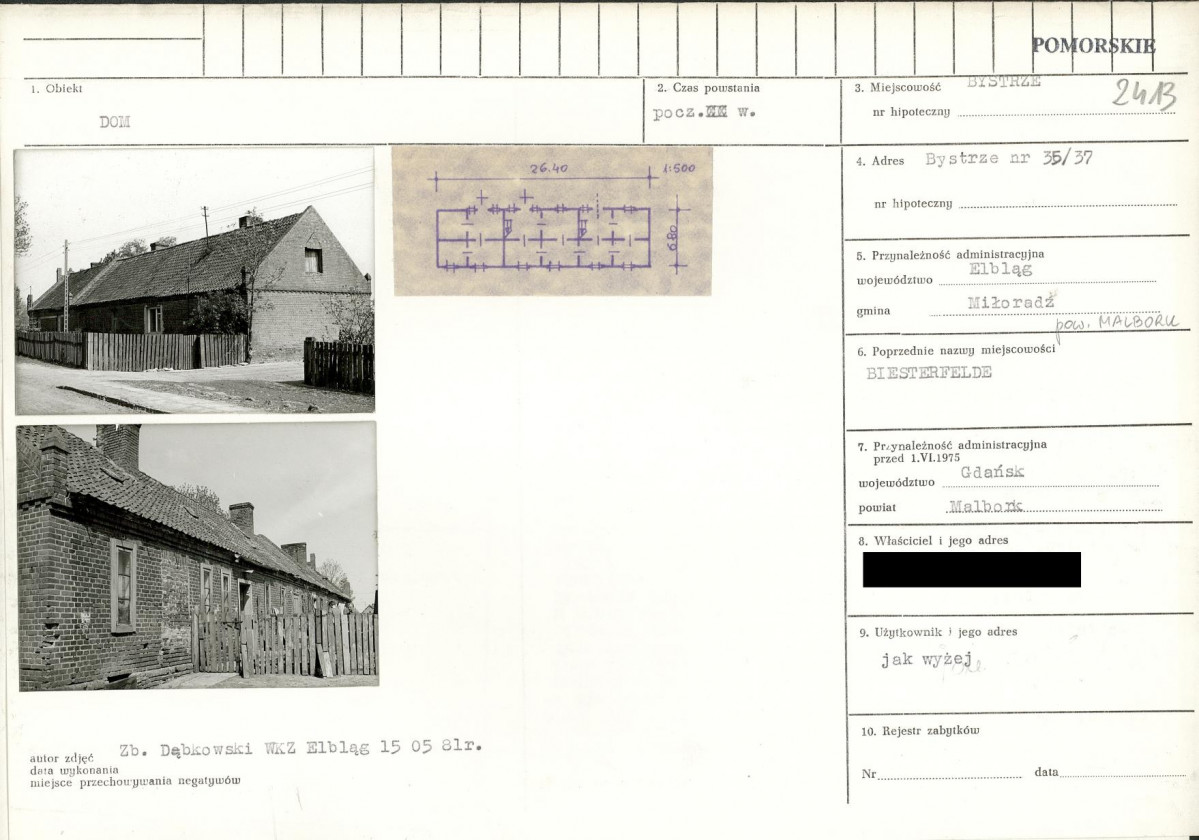 POMORSKIE
1. Obiekt
DOM
2. Czas powstania
pocz. XX w.
3. Miejscowość BYSTRZE
nr hipoteczny
2413
4. Adres Bystrze nr 35/37
nr hipoteczny
26.40 1:500
6.80
5. Przynależność administracyjna
województwo Elbląg
gmina Miłoradz
pow. MALBORK
6. Poprzednie nazwy miejscowości
BIESTERFELDE
7. Przynależność administracyjna
przed 1.VI.1975
województwo Gdańsk
powiat Malbork
8. Właściciel i jego adres
9. Użytkownik i jego adres
jak wyżej
10. Rejestr zabytków
Nr data
autor zdjęć Zb. Dąbkowski WKZ Elbląg 15 05 81r.
data wykonania
miejsce przechowywania negatywów